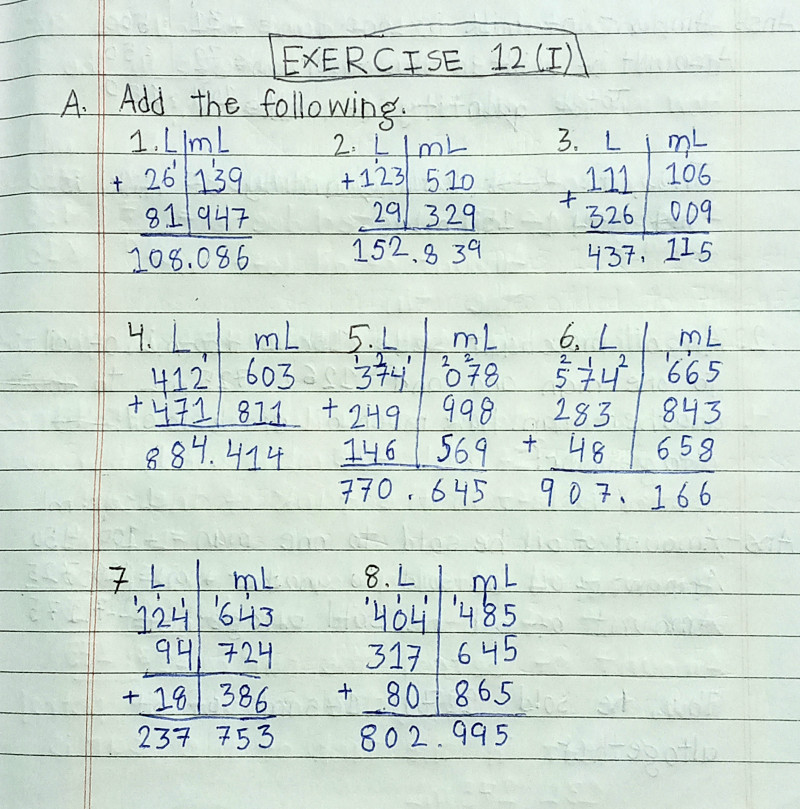 EXERCISE 12(I)
A. Add the following.
1. L mL 2. L mL 3. L mL
+ 26 139 +123 510 111 106
81 947 29 329 + 326 009
108.086 152.839 437.115
4. L mL 5. L mL 6. L mL
412 603 374 078 574 665
+471 811 +249 998 283 843
884.414 146 569 + 48 658
770.645 907.166
7 L mL 8. L mL
124 643 404 485
94 724 317 645
+18 386 + 80 865
237 753 802.995